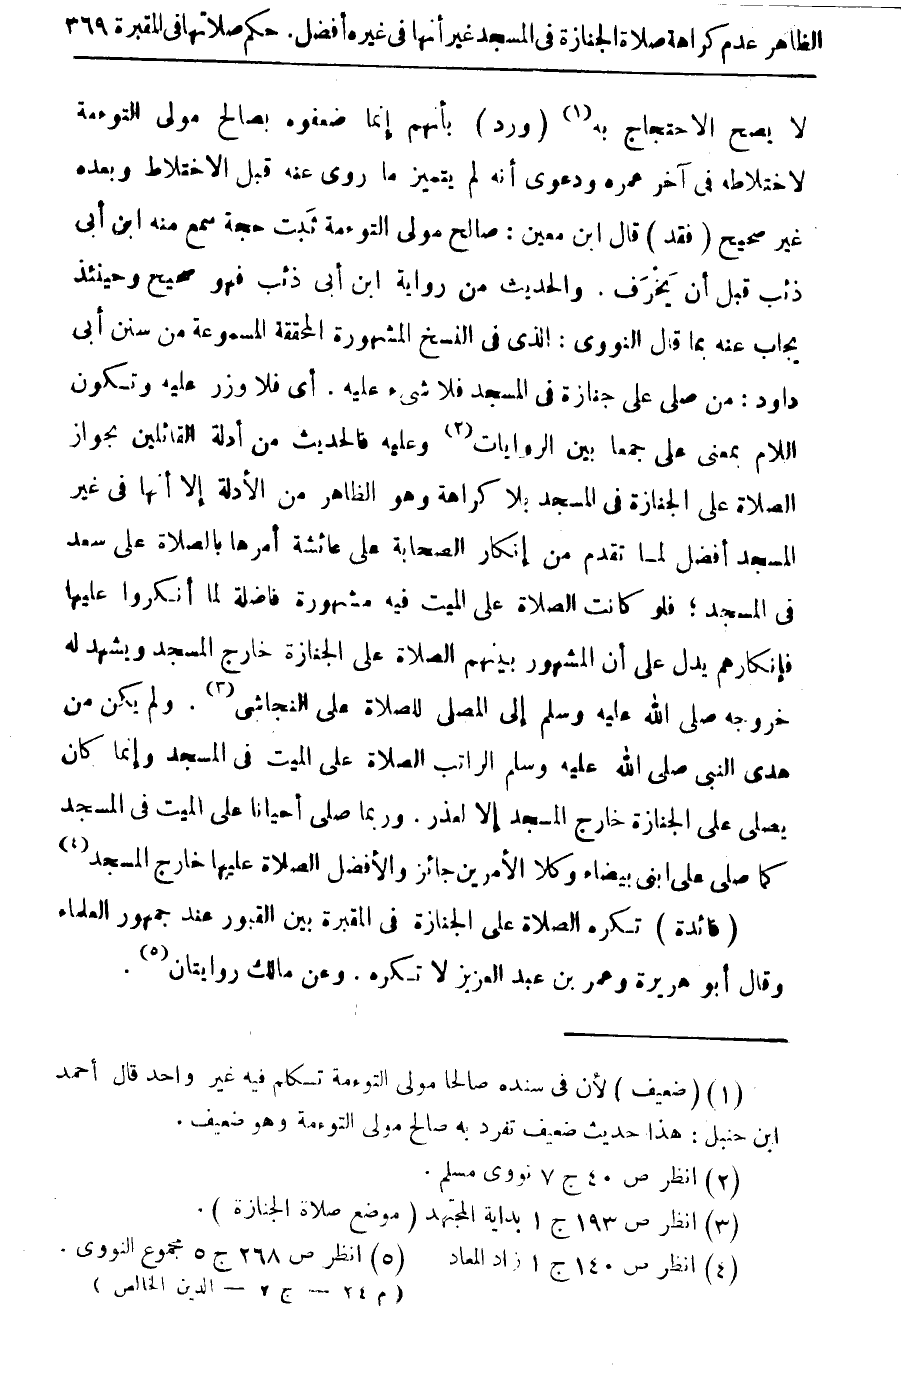 الظاهر عدم كراهة صلاة الجنازة فى المسجد غير أنها فى غيره أفضل. حكم صلاتها فى المقبرة ٣٦٩
لا يصح الاحتجاج به(١) (ورد) بأنهم إنما ضعفوه بصالح مولى التوءمة
لاختلاطه فى آخر عمره ودعوى أنه لم يتميز ما روى عنه قبل الاختلاط وبعده
غير صحيح (فقد) قال ابن معين : صالح مولى التوءمة ثَبت حجة سمع منه ابن أبى
ذئب قبل أن يَخْرَف . والحديث من رواية ابن أبى ذئب فهو صحيح وحينئذ
يجاب عنه بما قال النووى : الذى فى النسخ المشهورة المحققة المسموعة من سنن أبى
داود : من صلى على جنازة فى المسجد فلا شىء عليه . أى فلا وزر عليه وتكون
اللام بمعنى على جمعا بين الروايات(٢) وعليه فالحديث من أدلة القائلين بجواز
الصلاة على الجنازة فى المسجد بلا كراهة وهو الظاهر من الأدلة إلا أنها فى غير
المسجد أفضل لما تقدم من إنكار الصحابة على عائشة أمرها بالصلاة على سعد
فى المسجد ؛ فلو كانت الصلاة على الميت فيه مشهورة فاضلة لما أنكروا عليها
فإنكارهم يدل على أن المشهور بينهم الصلاة على الجنازة خارج المسجد ويشهد له
خروجه صلى الله عليه وسلم إلى المصلى للصلاة على النجاشى(٣) . ولم يكن من
هدى النبى صلى الله عليه وسلم الراتب الصلاة على الميت فى المسجد وإنما كان
يصلى على الجنازة خارج المسجد إلا لعذر . وربما صلى أحيانا على الميت فى المسجد
كما صلى على ابنى بيضاء وكلا الأمرين جائز والأفضل الصلاة عليها خارج المسجد(٤)
(فائدة) تكره الصلاة على الجنازة فى المقبرة بين القبور عند جمهور العلماء
وقال أبو هريرة وعمر بن عبد العزيز لا تكره . وعن مالك روايتان(٥) .
(١) (ضعيف) لأن فى سنده صالحا مولى التوءمة تكلم فيه غير واحد قال أحمد
ابن حنبل : هذا حديث ضعيف تفرد به صالح مولى التوءمة وهو ضعيف .
(٢) انظر ص ٤٠ ج ٧ نووى مسلم .
(٣) انظر ص ١٩٣ ج ١ بداية المجتهد (موضع صلاة الجنازة) .
(٤) انظر ص ١٤٠ ج ١ زاد المعاد (٥) انظر ص ٢٦٨ ج ٥ مجموع النووى .
(م ٢٤ — ج ٧ — الدين الخالص)